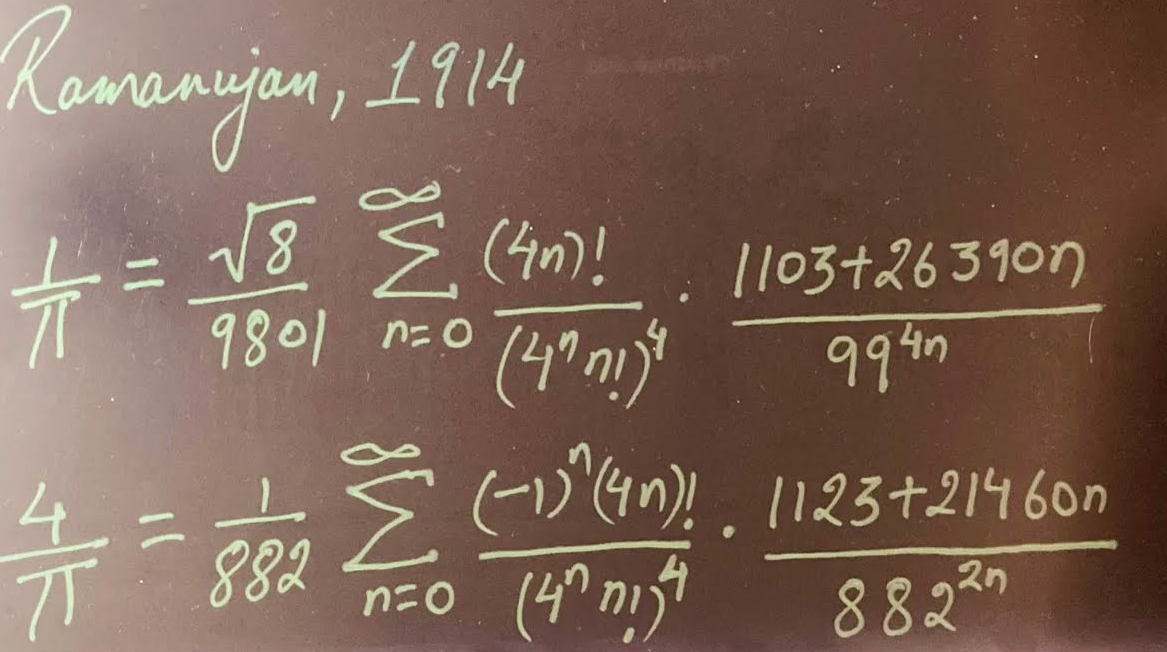 Ramanujan, 1914
1/π = √8/9801 ∑_{n=0}^{∞} (4n)!/(4ⁿ n!)⁴ · (1103+26390n)/99⁴ⁿ
4/π = 1/882 ∑_{n=0}^{∞} (-1)ⁿ(4n)!/(4ⁿ n!)⁴ · (1123+21460n)/882²ⁿ